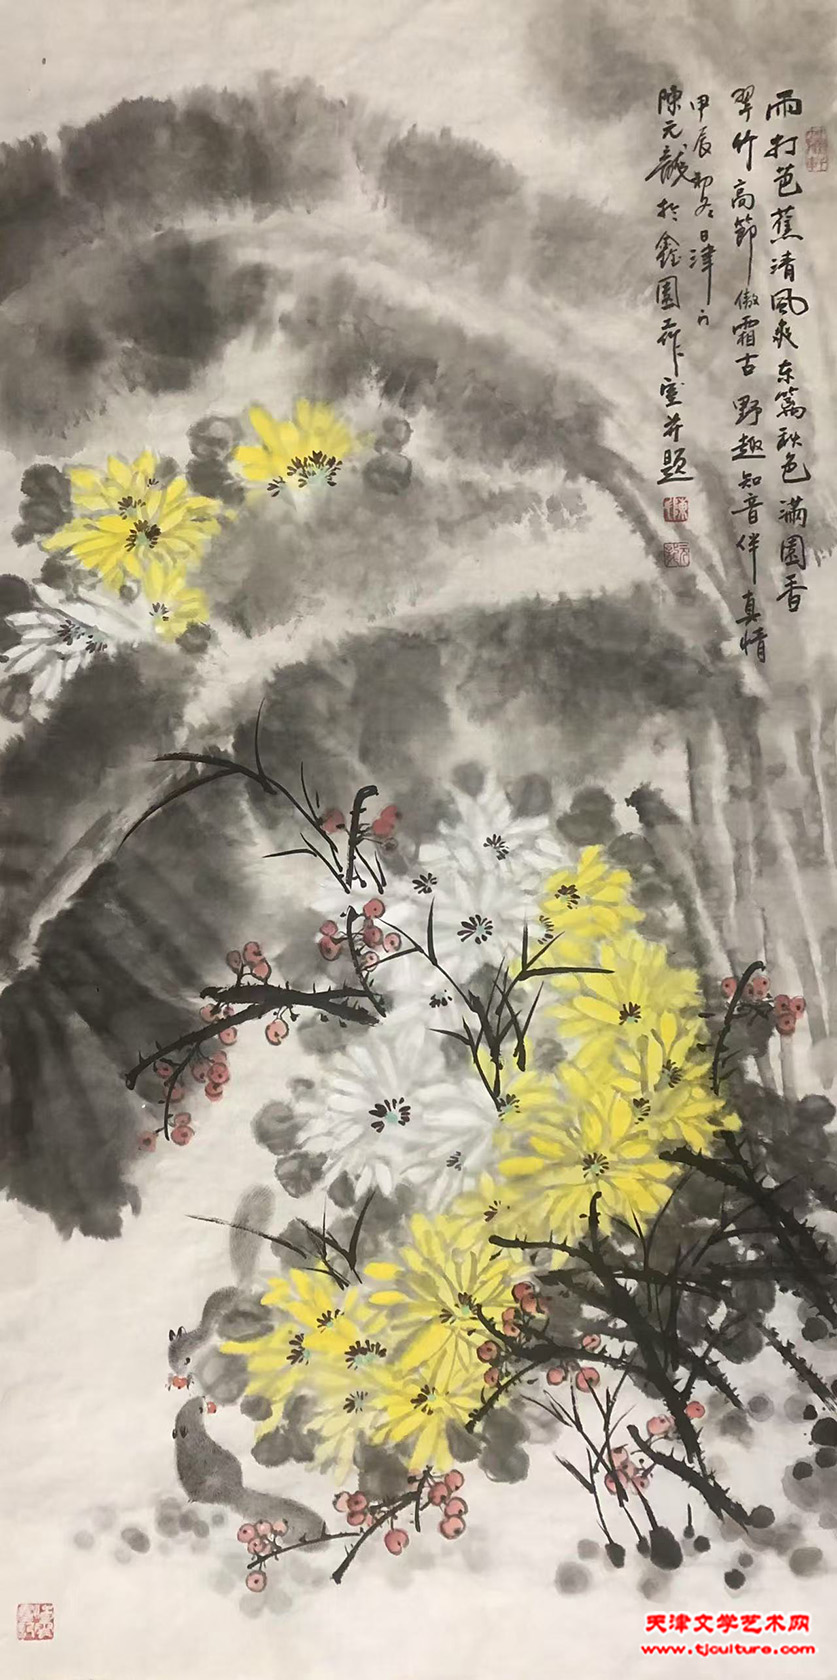 雨打芭蕉清风爽东篱秋色满園香
翠竹高節傲霜古野趣知音伴真情
甲辰初冬日津门
陳元龍於鑫園薪作室并題
天津文学艺术网
www.tjculture.com